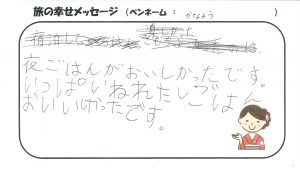 旅の幸せメッセージ（ペンネーム：かなよう）
夜ごはんがおいしかったです。
いっぱいねれたしごはん
おいいかったです。